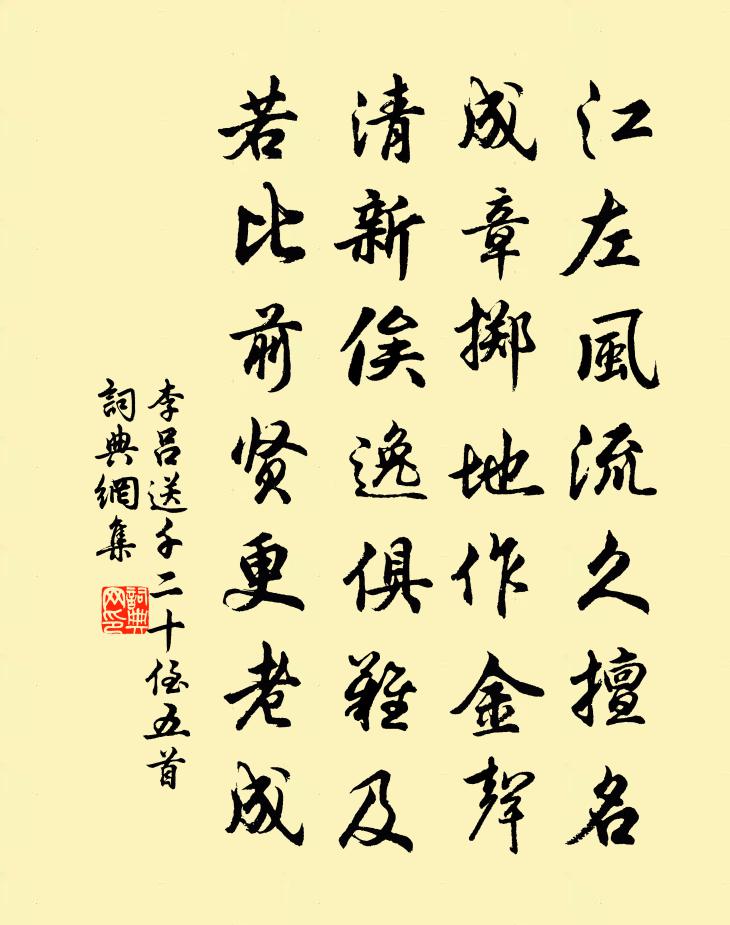 江左風流久擅名
成章擲地作金聲
清新俊逸俱難及
若比前贤更老成
李呂送千二十侄五首
詞典網集
詞典网印